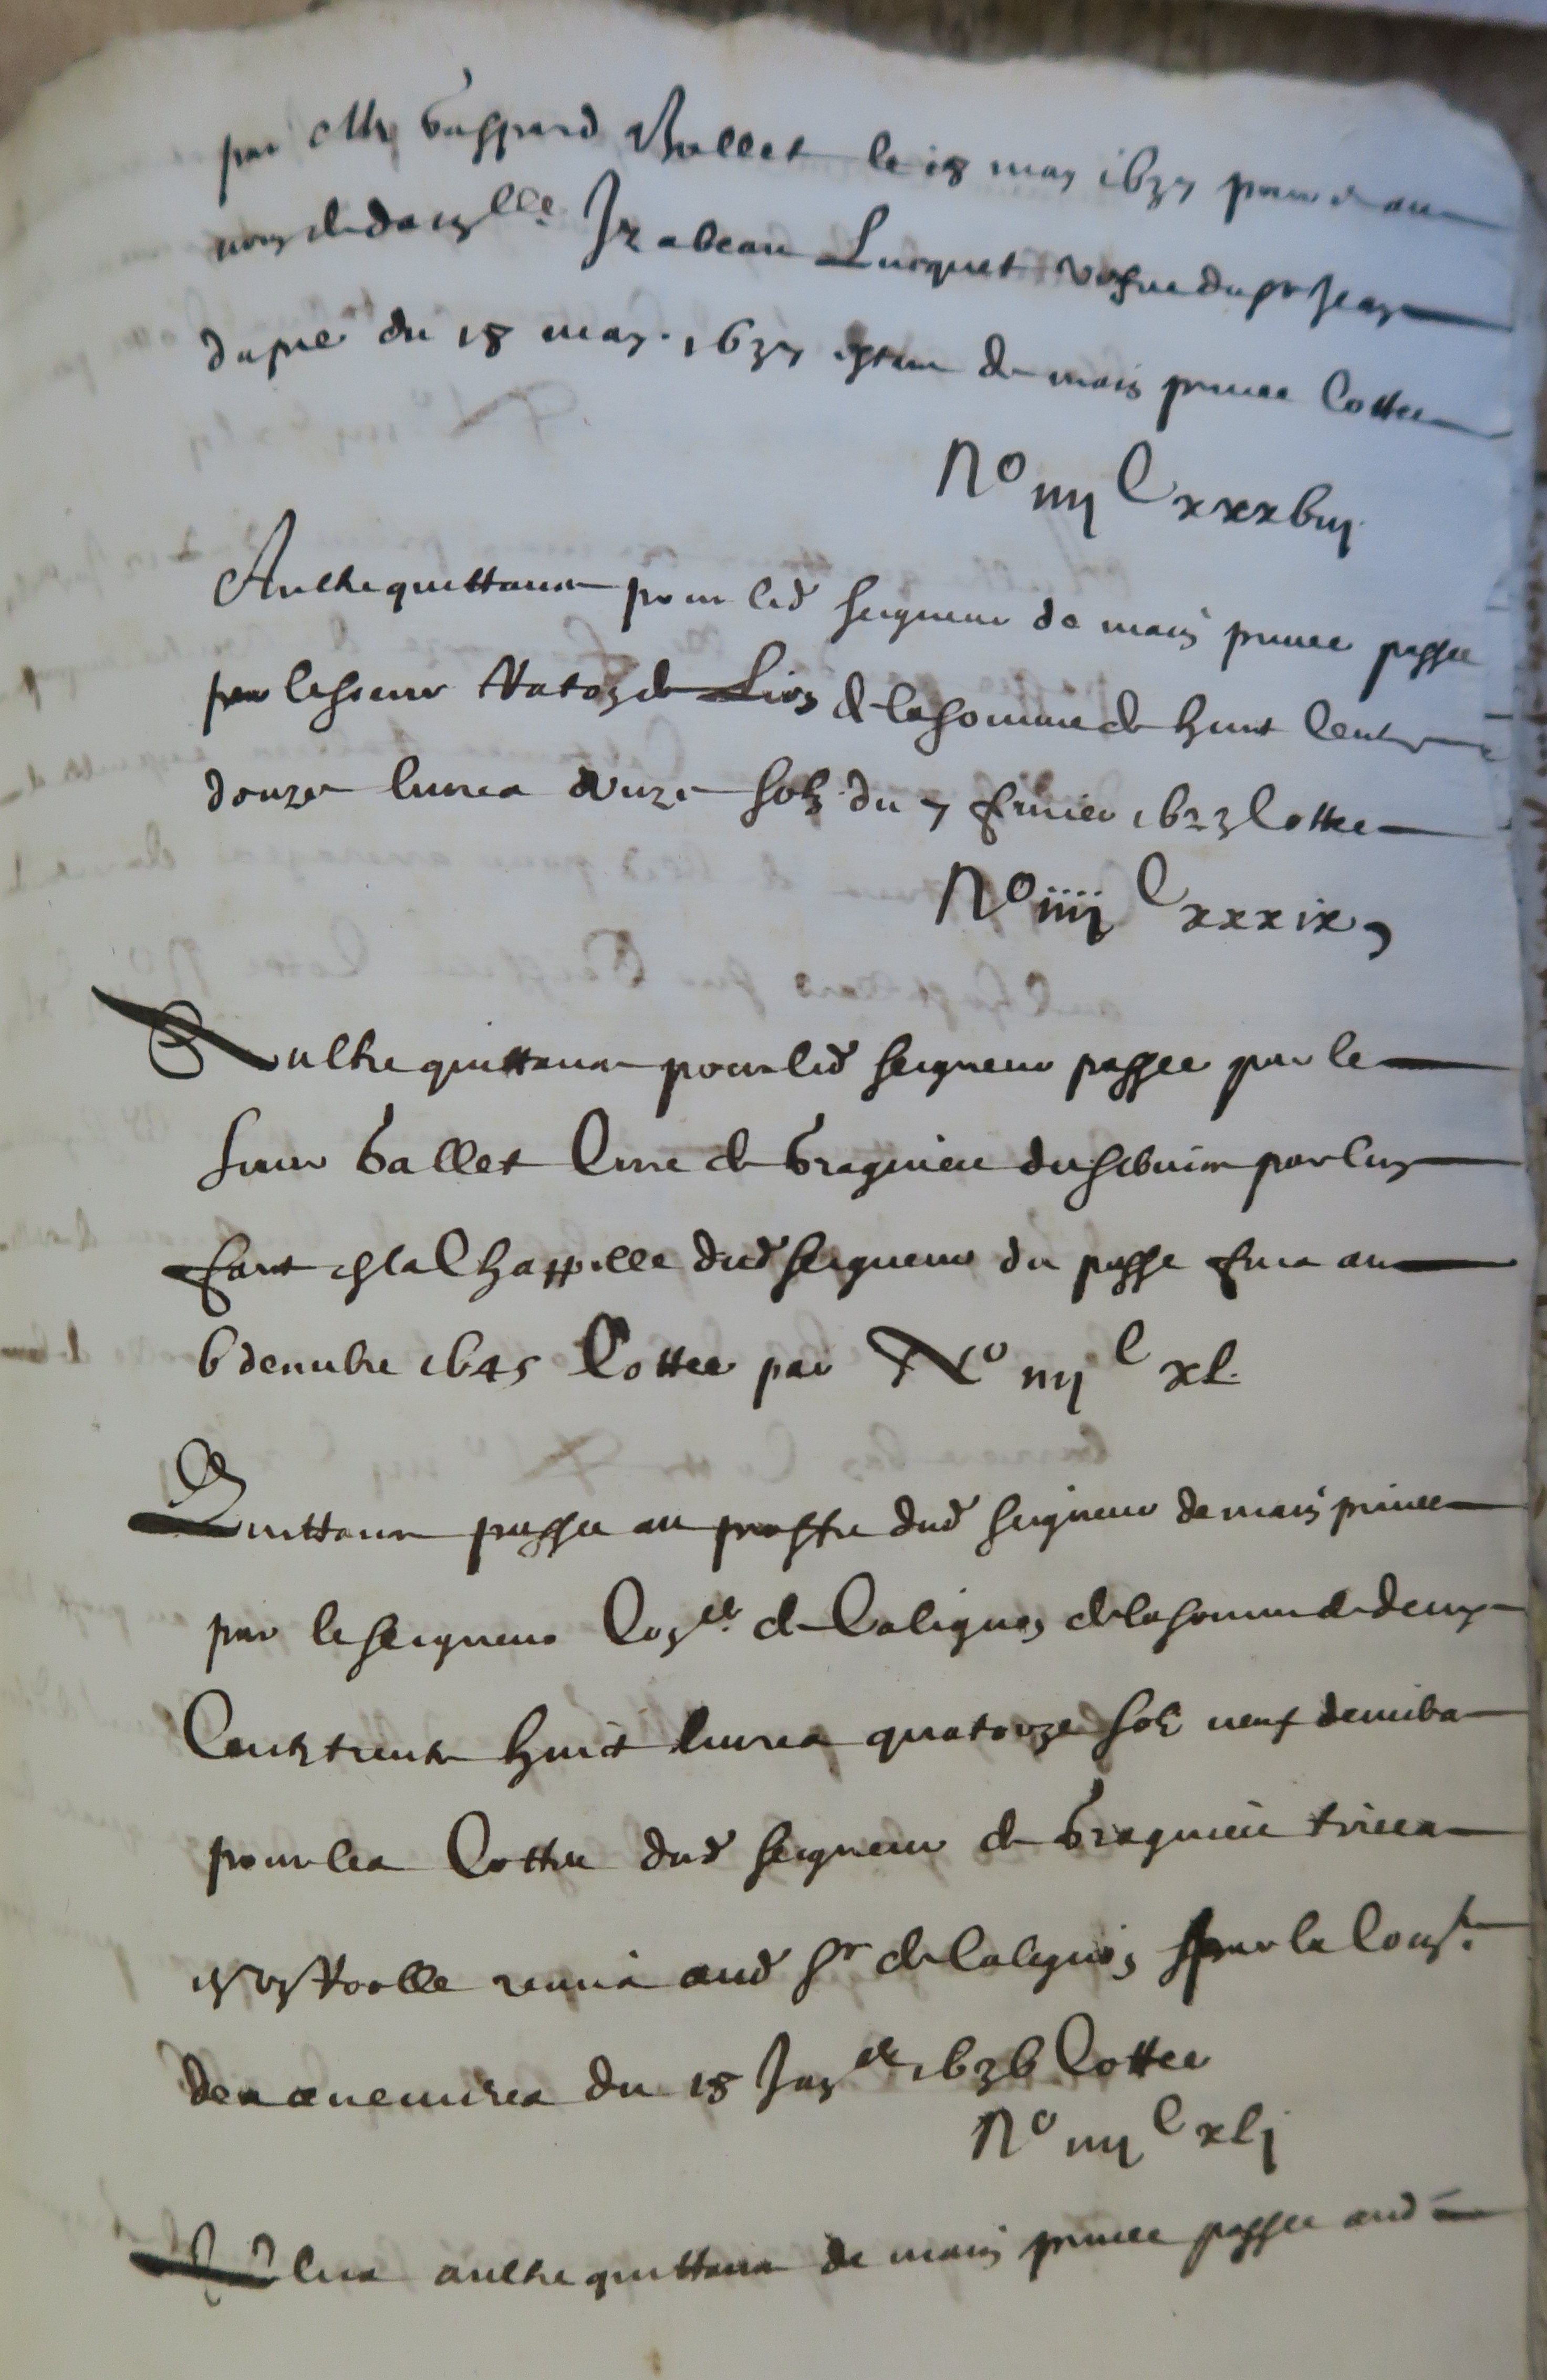 par Mr Gaspard Ballet le 18 may 1637 pour et au
nom de da<sup>lle</sup> Izabeau Lucquet vefve du sr Jean
dupré du 18 may 1637 estant de main privee Cottee
No iiij C xxxviij
Aultre quittance pour led seigneur de main privee passee
par le sieur de Lion de la somme de huit Centz
douze livres unze solz du 7 febvrier 1623 Cottee
No iiij C xxxix
Aultre quittance pour led seigneur passee par le
sieur Gallet Cure de Bragnieu du service par luy
faict en la Chappelle dud seigneur du passe jusques au
6 decembre 1645 Cottee par No iiij C xl
Quittance passee au proffit dud seigneur de main privee
par le seigneur Coner de Calignon de la somme de deux
Centz trente huit livres quatorze solz neuf deniers
pour les Cottes dud seigneur de Bragnieu
en un Rolle remis aud sr de Calignon par le
des du 18 Janer 1636 Cottee
No iiij C xlj
Plus aultre quittance de main privee passee aud